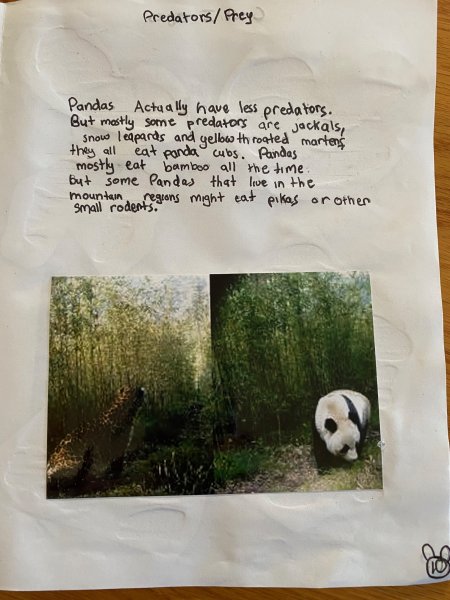 Predators/Prey
Pandas Actually have less predators.
But mostly some predators are jackals,
snow leapards and yellow throated martens,
they all eat panda cubs. Pandas
mostly eat bamboo all the time.
But some Pandas that live in the
mountain regions might eat pikas or other
small rodents.
10